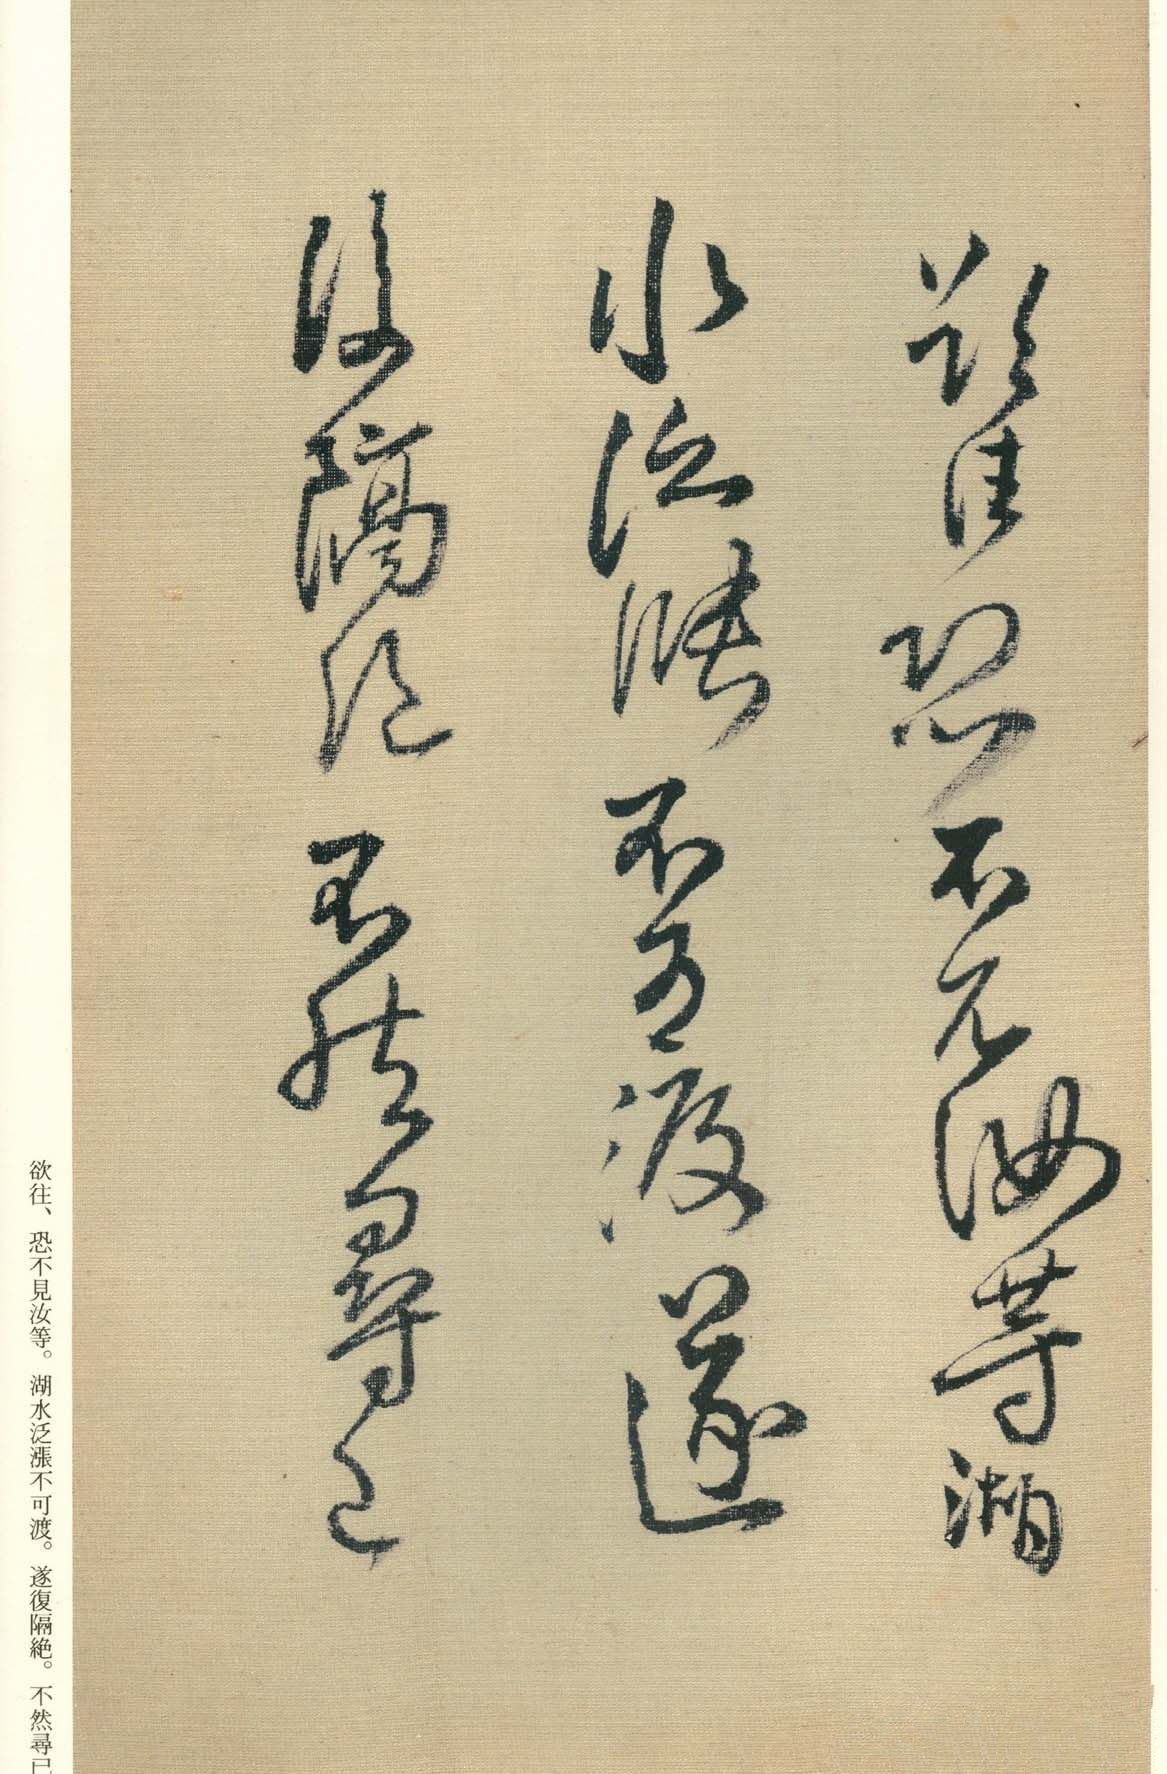 欲往恐不見汝等湖
水泛漲不可渡遂
復隔絶不然尋已
欲往、恐不見汝等。湖水泛漲不可渡。遂復隔絶。不然尋已